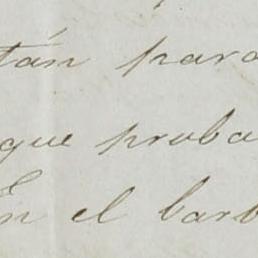 tán para
que proba
En el barb